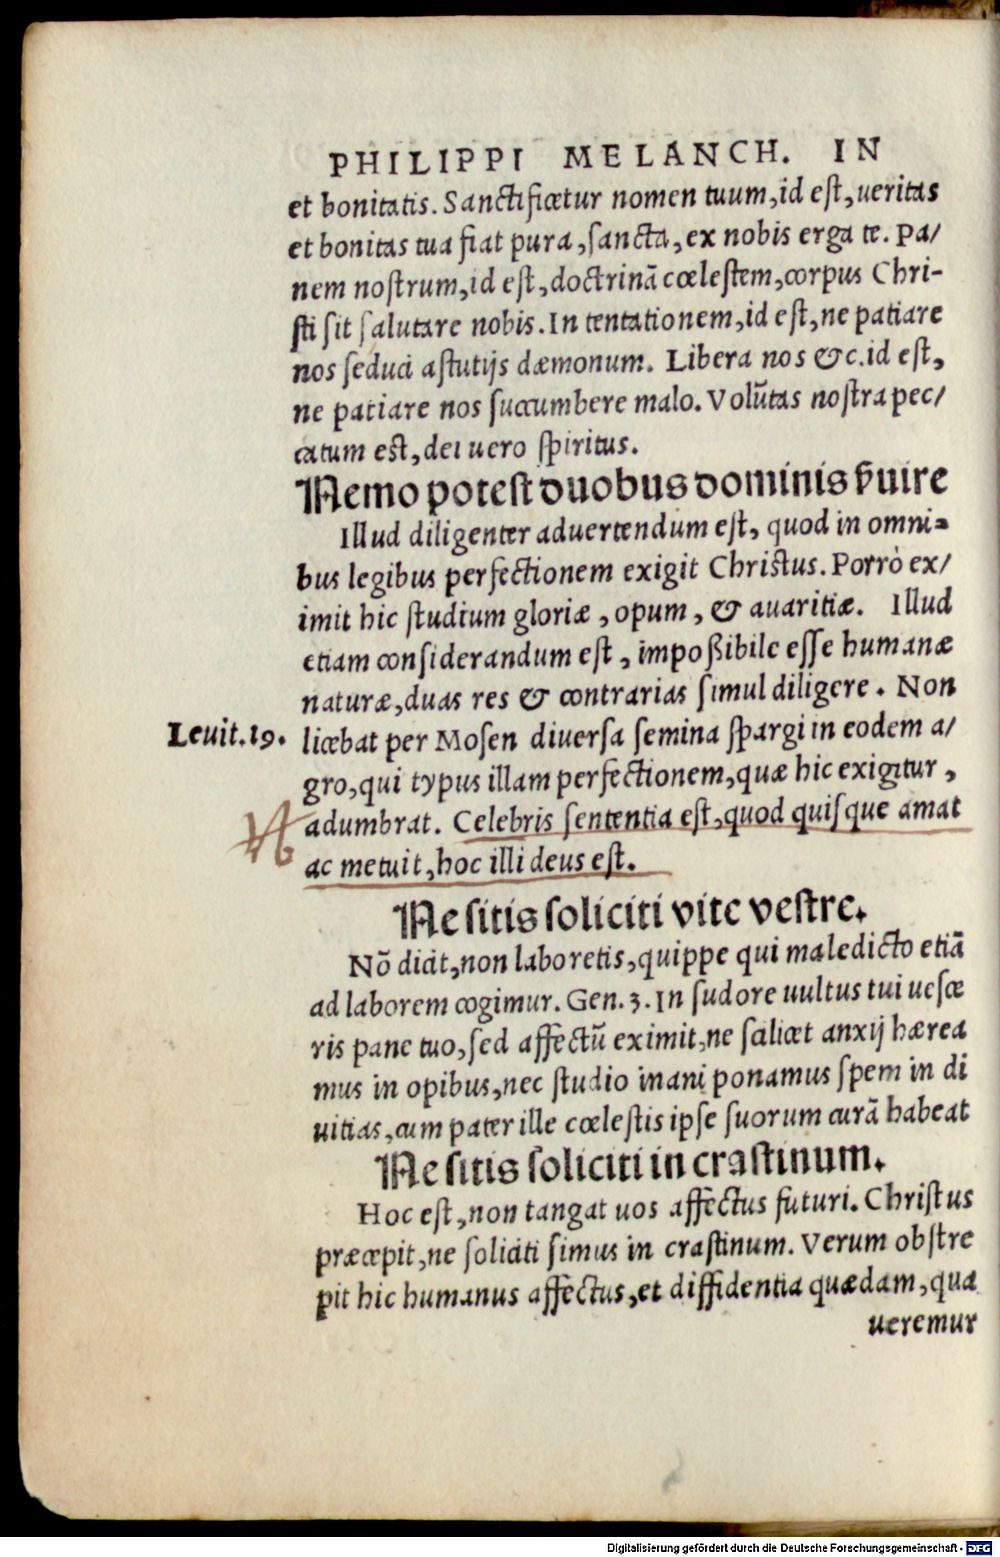 PHILIPPI MELANCH. IN
et bonitatis. Sanctificetur nomen tuum, id est, ueritas
et bonitas tua fiat pura, sancta, ex nobis erga te. Pa/
nem nostrum, id est, doctrinã cœlestem, corpus Chri-
sti sit salutare nobis. In tentationem, id est, ne patiare
nos seduci astutijs dæmonum. Libera nos &c. id est,
ne patiare nos succumbere malo. Volũtas nostra pec/
catum est, dei uero spiritus.
Nemo potest duobus dominis s̃uire
Illud diligenter aduertendum est, quod in omni=
bus legibus perfectionem exigit Christus. Porrò ex/
imit hic studium gloriæ, opum, & auaritiæ. Illud
etiam considerandum est, impoßibile esse humanæ
naturæ, duas res & contrarias simul diligere. Non
Leuit. 19. licebat per Mosen diuersa semina spargi in eodem a/
gro, qui typus illam perfectionem, quæ hic exigitur,
adumbrat. Celebris sententia est, quod quisque amat
ac metuit, hoc illi deus est.
Ne sitis soliciti vite vestre.
Nõ dicit, non laboretis, quippe qui maledicto etiã
ad laborem cogimur. Gen. 3. In sudore uultus tui uesce
ris pane tuo, sed affectũ eximit, ne scilicet anxij hærea
mus in opibus, nec studio inani ponamus spem in di
uitias, cum pater ille cœlestis ipse suorum curã habeat
Ne sitis soliciti in crastinum.
Hoc est, non tangat uos affectus futuri. Christus
præcepit, ne soliciti simus in crastinum. Verum obstre
pit hic humanus affectus, et diffidentia quædam, qua
ueremur
Digitalisierung gefördert durch die Deutsche Forschungsgemeinschaft - DFG